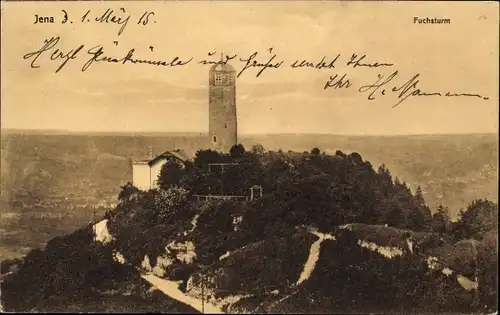 Jena d. 1. März 15.
Fuchsturm
Herzl. Glückwünsche und Grüße sendet Ihnen
Ihr H. Aßmann.